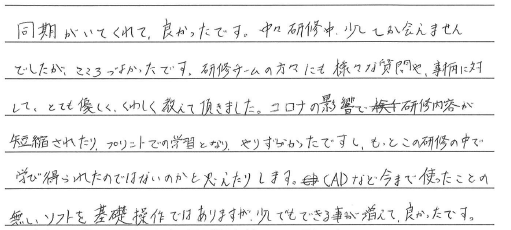 同期がいてくれて、良かったです。中々研修中、少ししか会えません
でしたが、こころづよかったです。研修チームの方々にも様々な質問や、事柄に対
して、とても優しく、くわしく教えて頂きました。コロナの影響で研修内容が
短縮されたり、プリントでの学習となり、やりずらかったですし、もっとこの研修の中で
学び得られたのではないのかと思えたりします。CADなど今まで使ったことの
無いソフトを基礎操作ではありますが、少しでもできる事が増えて、良かったです。